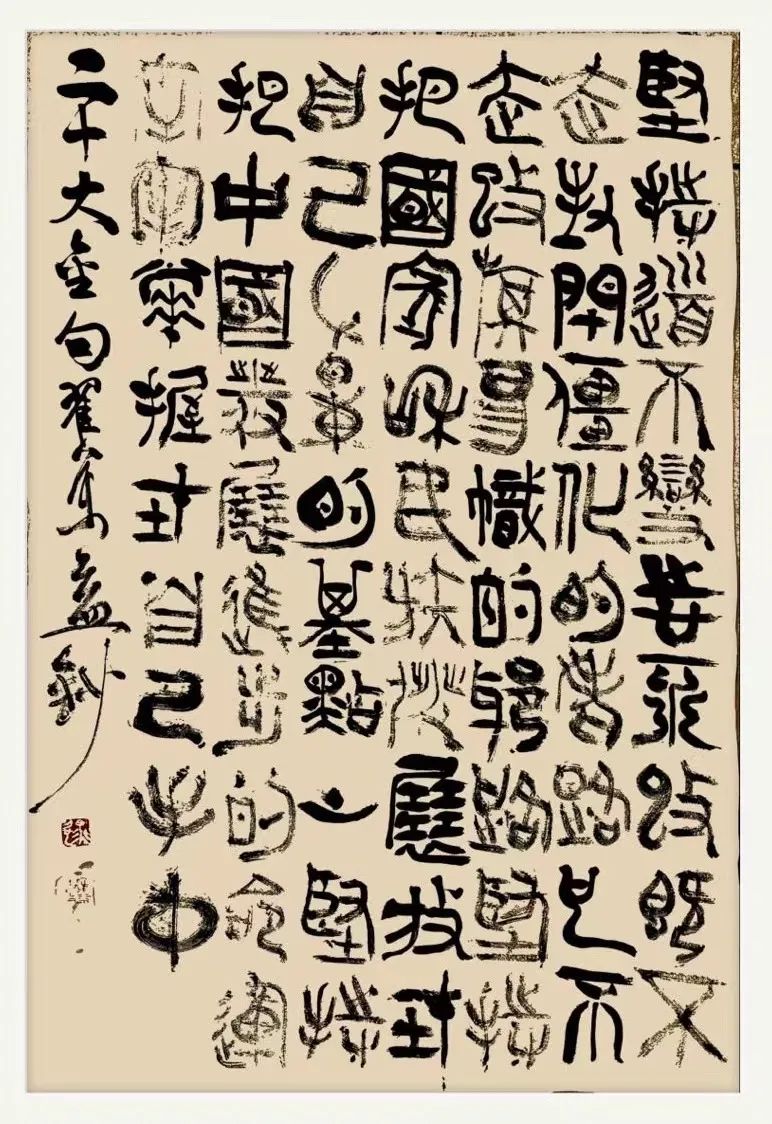 堅持道不變志不改既不
走封閉僵化的老路也不
走改旗易幟的邪路堅持
把國家和民族發展放在
自己力量的基點上堅持
把中國發展進步的命運
牢牢掌握在自己手中
二十大金句翟萬益鈔